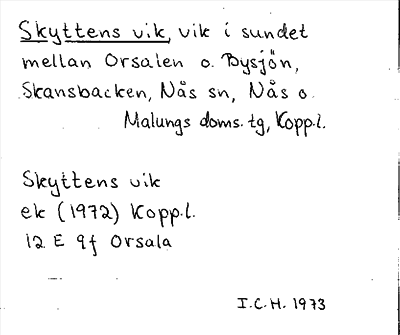 Skyttens vik, vik i sundet
mellan Orsalen o. Bysjön,
Skansbacken, Nås sn, Nås o.
Malungs doms. tg, Kopp.l.
Skyttens vik
ek (1972) Kopp.l.
12 E 9f Orsala
I.C.H. 1973